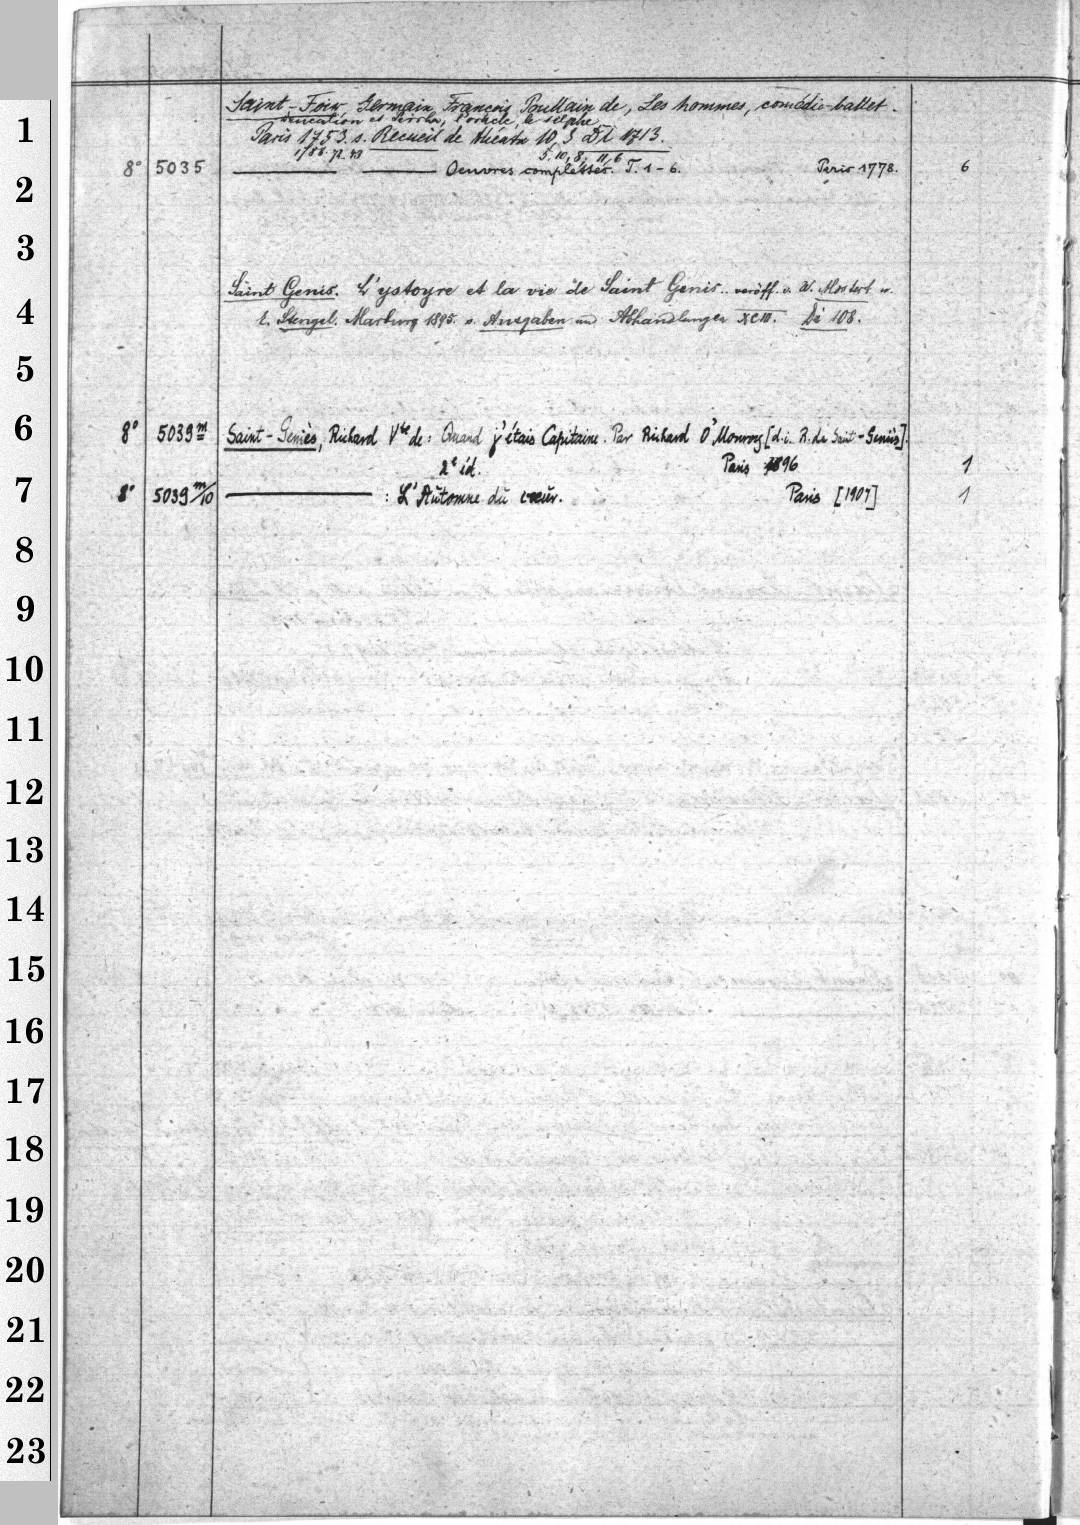 Saint-Foix, Germain François Poullain de, Les hommes, comédie-ballet.
l'oracle, le sylphe
Paris 1753. s. Recueil de théatre 10,3 Dl 1713.
5, 10, 8; 11, 6
8° 5035 Oeuvres complettes. T. 1-6. Paris 1778. 6
Saint Genis. L'ystoyre et la vie de Saint Genis. veröff. v. W. Mostert u.
E. Stengel. Marburg 1895. s. Ausgaben und Abhandlungen XCIII. Di 108.
8° 5039m Saint-Geniès, Richard Vte de: Quand j'étais Capitaine. Par Richard O'Monroy [d. i. R. de Saint-Geniès].
2e éd. Paris 1896 1
8° 5039m/10 : L'Automne du cœur. Paris [1907] 1
1
2
3
4
5
6
7
8
9
10
11
12
13
14
15
16
17
18
19
20
21
22
23